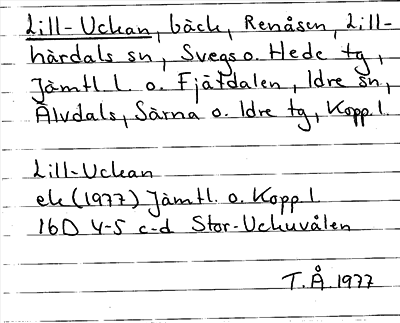 Lill-Uckan, bäck, Renåsen, Lill-
härdals sn, Svegs o. Hede tg,
Jämtl. l. o. Fjätdalen, Idre sn,
Älvdals, Särna o. Idre tg, Kopp. l.
Lill-Uckan
ek (1977) Jämtl. o. Kopp. l.
16D 4-5 c-d Stor-Uckuvålen
T.Å. 1977